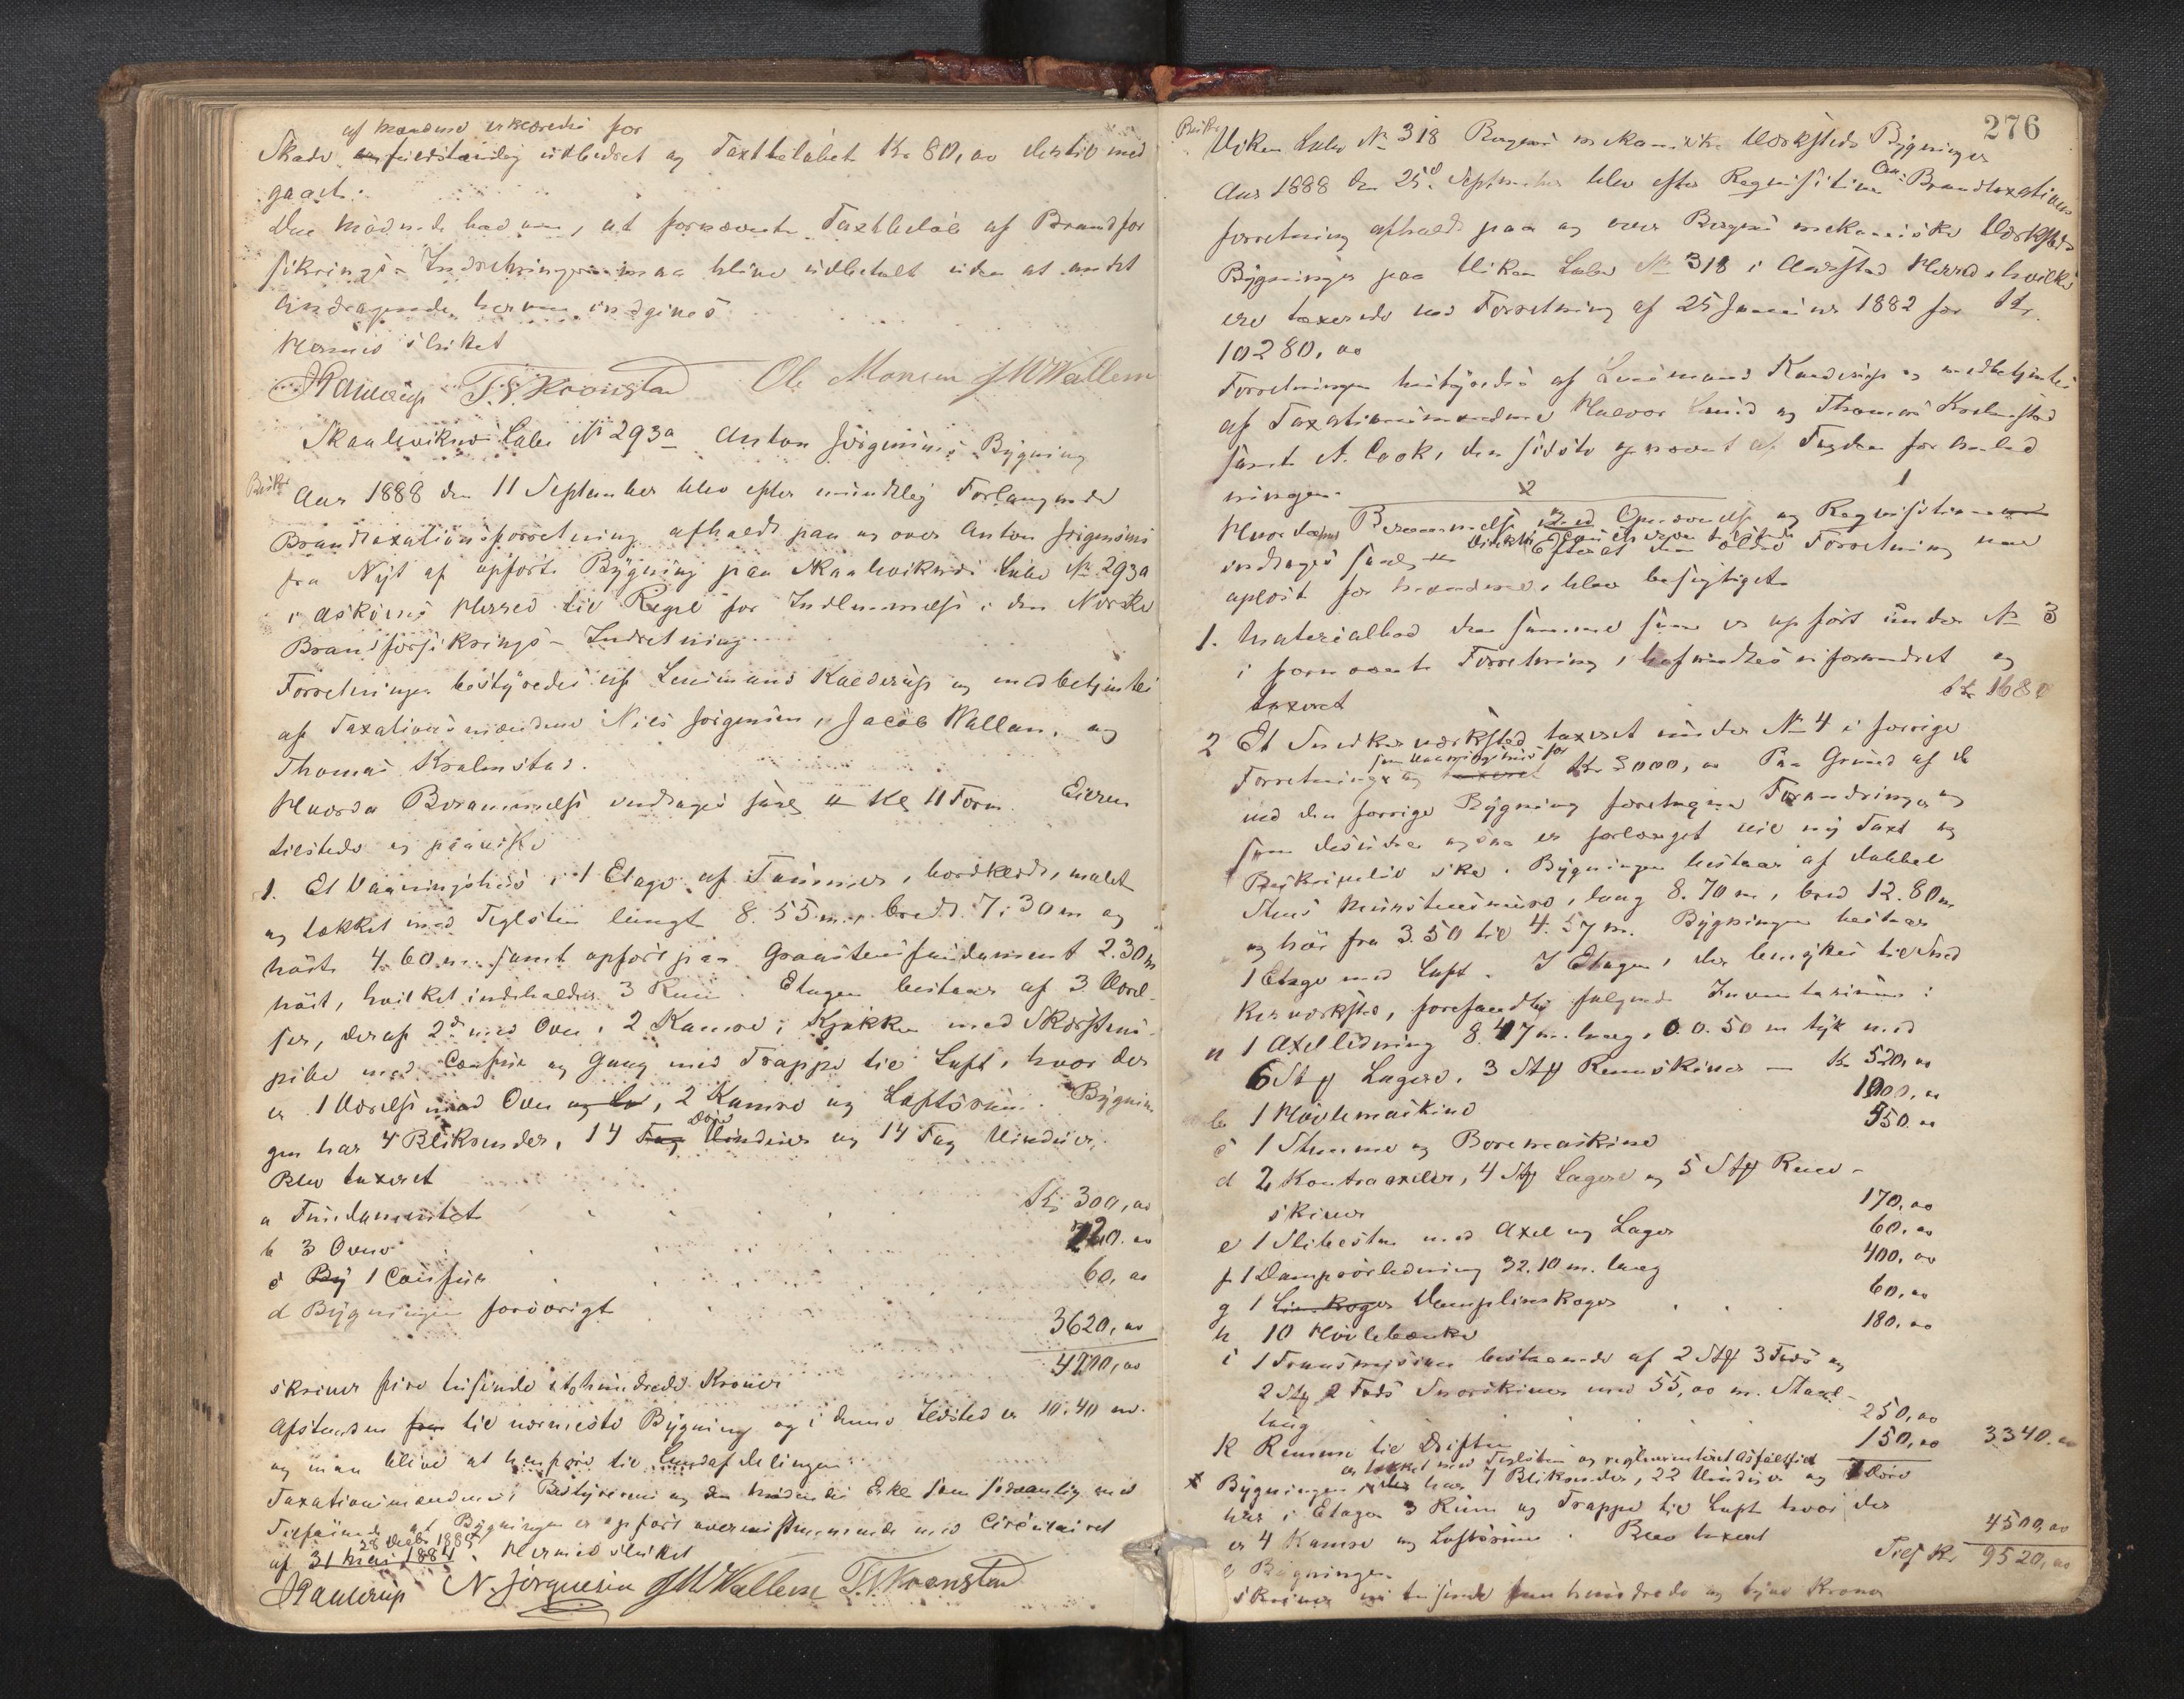 af Mændene erklæredes for
Skade fuldstændig udbedret og Taxtbeløbet Kr 80,00 dertil med
gaaet.
De mødende bad om, at fornævnte Taxtbeløb af Brandfor
sikrings-Indretningen maa blive udbetalt uden at andet
Andragende herom indgives
Hermed sluttet
T. S. Kronstad Ole Monsen J W Wallem
Skaalevikens Løbe No 293a Anton Jørgensens Bygning
Aar 1888 den 11 September blev efter mundtlig Forlangende
Brandtaxationsforretning afholdt paa og over Anton Jørgensens
fra Nyt af opførte Bygning paa Skaalevikens Løbe No 293a
i Askøens Herred til Regel for Indlemmelse i den Norske
Brandforsikrings-Indretning.
Forretningen bestyredes af Lensmand Kaldrup og medbetjentes
af Taxationsmændene Nils Jørgensen, Jacob Wallem, og
Thomas Kralmstad.
Hvorda Berammelse vedtages saal. Kl 11 Form. Eieren
tilstede og paaviste
1. Et Vaaningshus i 1 Etage af Tømmer, bordklædt, malet
og tækket med Teglsten langt 8.55 m, bredt 7.30 m og
høit 4.60 m. samt opført paa Graastensfundament 2.30 m
høit, hvilket indeholder 3 Rum. Etagen bestaar af 3 Værel-
ser, deraf 2de med Ovn, 2 Kamre, Kjøkken med Skorstens-
pibe med Comfur og Gang med Trappe til Loft, hvor der
er 1 Værelse med Ovn og, 2 Kamre og Loftsrum. Bygnin
gen har 4 Blikrender, 14 Fag Døre Vinduer og 14 Fag Vinduer.
Blev taxeret
a Fundamentet Kr 300,00
b 3 Ovne 220.00
c By 1 Comfur 60,00
d Bygningen forøvrigt 3620,00
4200,00
skriver fire tusinde tohundrede Kroner
Afstanden fra til nærmeste Bygning og i denne Ildsted er 10.40 m.
og man blive at henføre til Landafdelingen.
Taxationsmændenes Bestyreren og den mødende Eier som sædvanlig med
Tilføiende at Bygningen er opført overensstemmende med Circulairet
28 Decbr 1885
af 31 Mai 1884. Hermed sluttet
N. Jørgensen J W Wallem T. S. Kronstad
276
Viken Løbe No 318 Bergens mekaniske Værksteds Bygninger
Aar 1888 den 25d. September blev efter Requisition Brandtaxations
forretning afholdt paa og over Bergens mekaniske Værksteds
Bygninger paa Viken Løbe No 318 i Aarstad Herred, hvilke
ere taxerede ved Forretning af 25 Januar 1882 for Kr.
10280,00
Forretningen bestyredes af Lensmand Kaldrup og medbetjentes
af Taxationsmændene Halvor Lund og Thomas Kralmstad
samt A. Cook, den sidste opnævnt af Fogden for Anled
ningen.
Hvorda Berammelse med Opnævnelse og Requisition
vedtages saal. Efterat den ældre Forretning var
oplæst for Mændene, blev besigtiget
1. Materialbod den samme som er opført under No 3
i fornævnte Forretning, befandtes uforandret og
taxeret Kr 1680
2 Et Snedkerværksted taxeret under No 4 i forrige
Forretning og taxeret Kr 3000,00 Paa Grund af de
ved den forrige Bygning foretagne Forandringer og
som desuden ogsaa er forlænget vil ny Taxt og
Beskrivelse ske. Bygningen bestaar af dobbel
Stens Murstensmure, lang 8.70 m, bred 12.80 m
og høi fra 3.50 til 4.57 m. Bygningen bestaar
1 Etage med Loft. I Etagen, der benyttes til Sned
kerværksted, forefandtes følgende Inventarium:
a 1 Axelledning 8.47 m. lang, 0.50 m tyk med
6 Stk Lagere, 3 Stk Remskiver — Kr 520,00
b 1 Høvlemaskine 1000,00
c 1 Stemme og Boremaskine 550.00
d 2 Kontraaxler, 4 Stk Lagere og 5 Stk Rem-
skiver 170,00
e 1 Slibesten med Axel og Lager 60,00
f 1 Damprørledning 32.10 m. lang 400,00
g 1 Lim-koger Damplimkoger 60,00
h 10 Høvlebænke 180,00
i 1 Transmission bestaaende af 2 Stk 3 Fods og
2 Stk 2 Fods Snorskiver med 55,00 m. Staal-
taug 250,00
k Remme til Driften 150,00 3340.00
er tækket med Teglsten og reglementeret Asfaltfilt
x Bygningen, der har 7 Blikrender, 22 Vinduer og Døre
har i Etagen 3 Rum og Trappe til Loft hvor der
er 4 Kamre og Loftsrum. Blev taxeret
Bygningen 4500,00
Tils Kr 9520,00
skriver ni tusinde fem hundrede og tyve Kroner